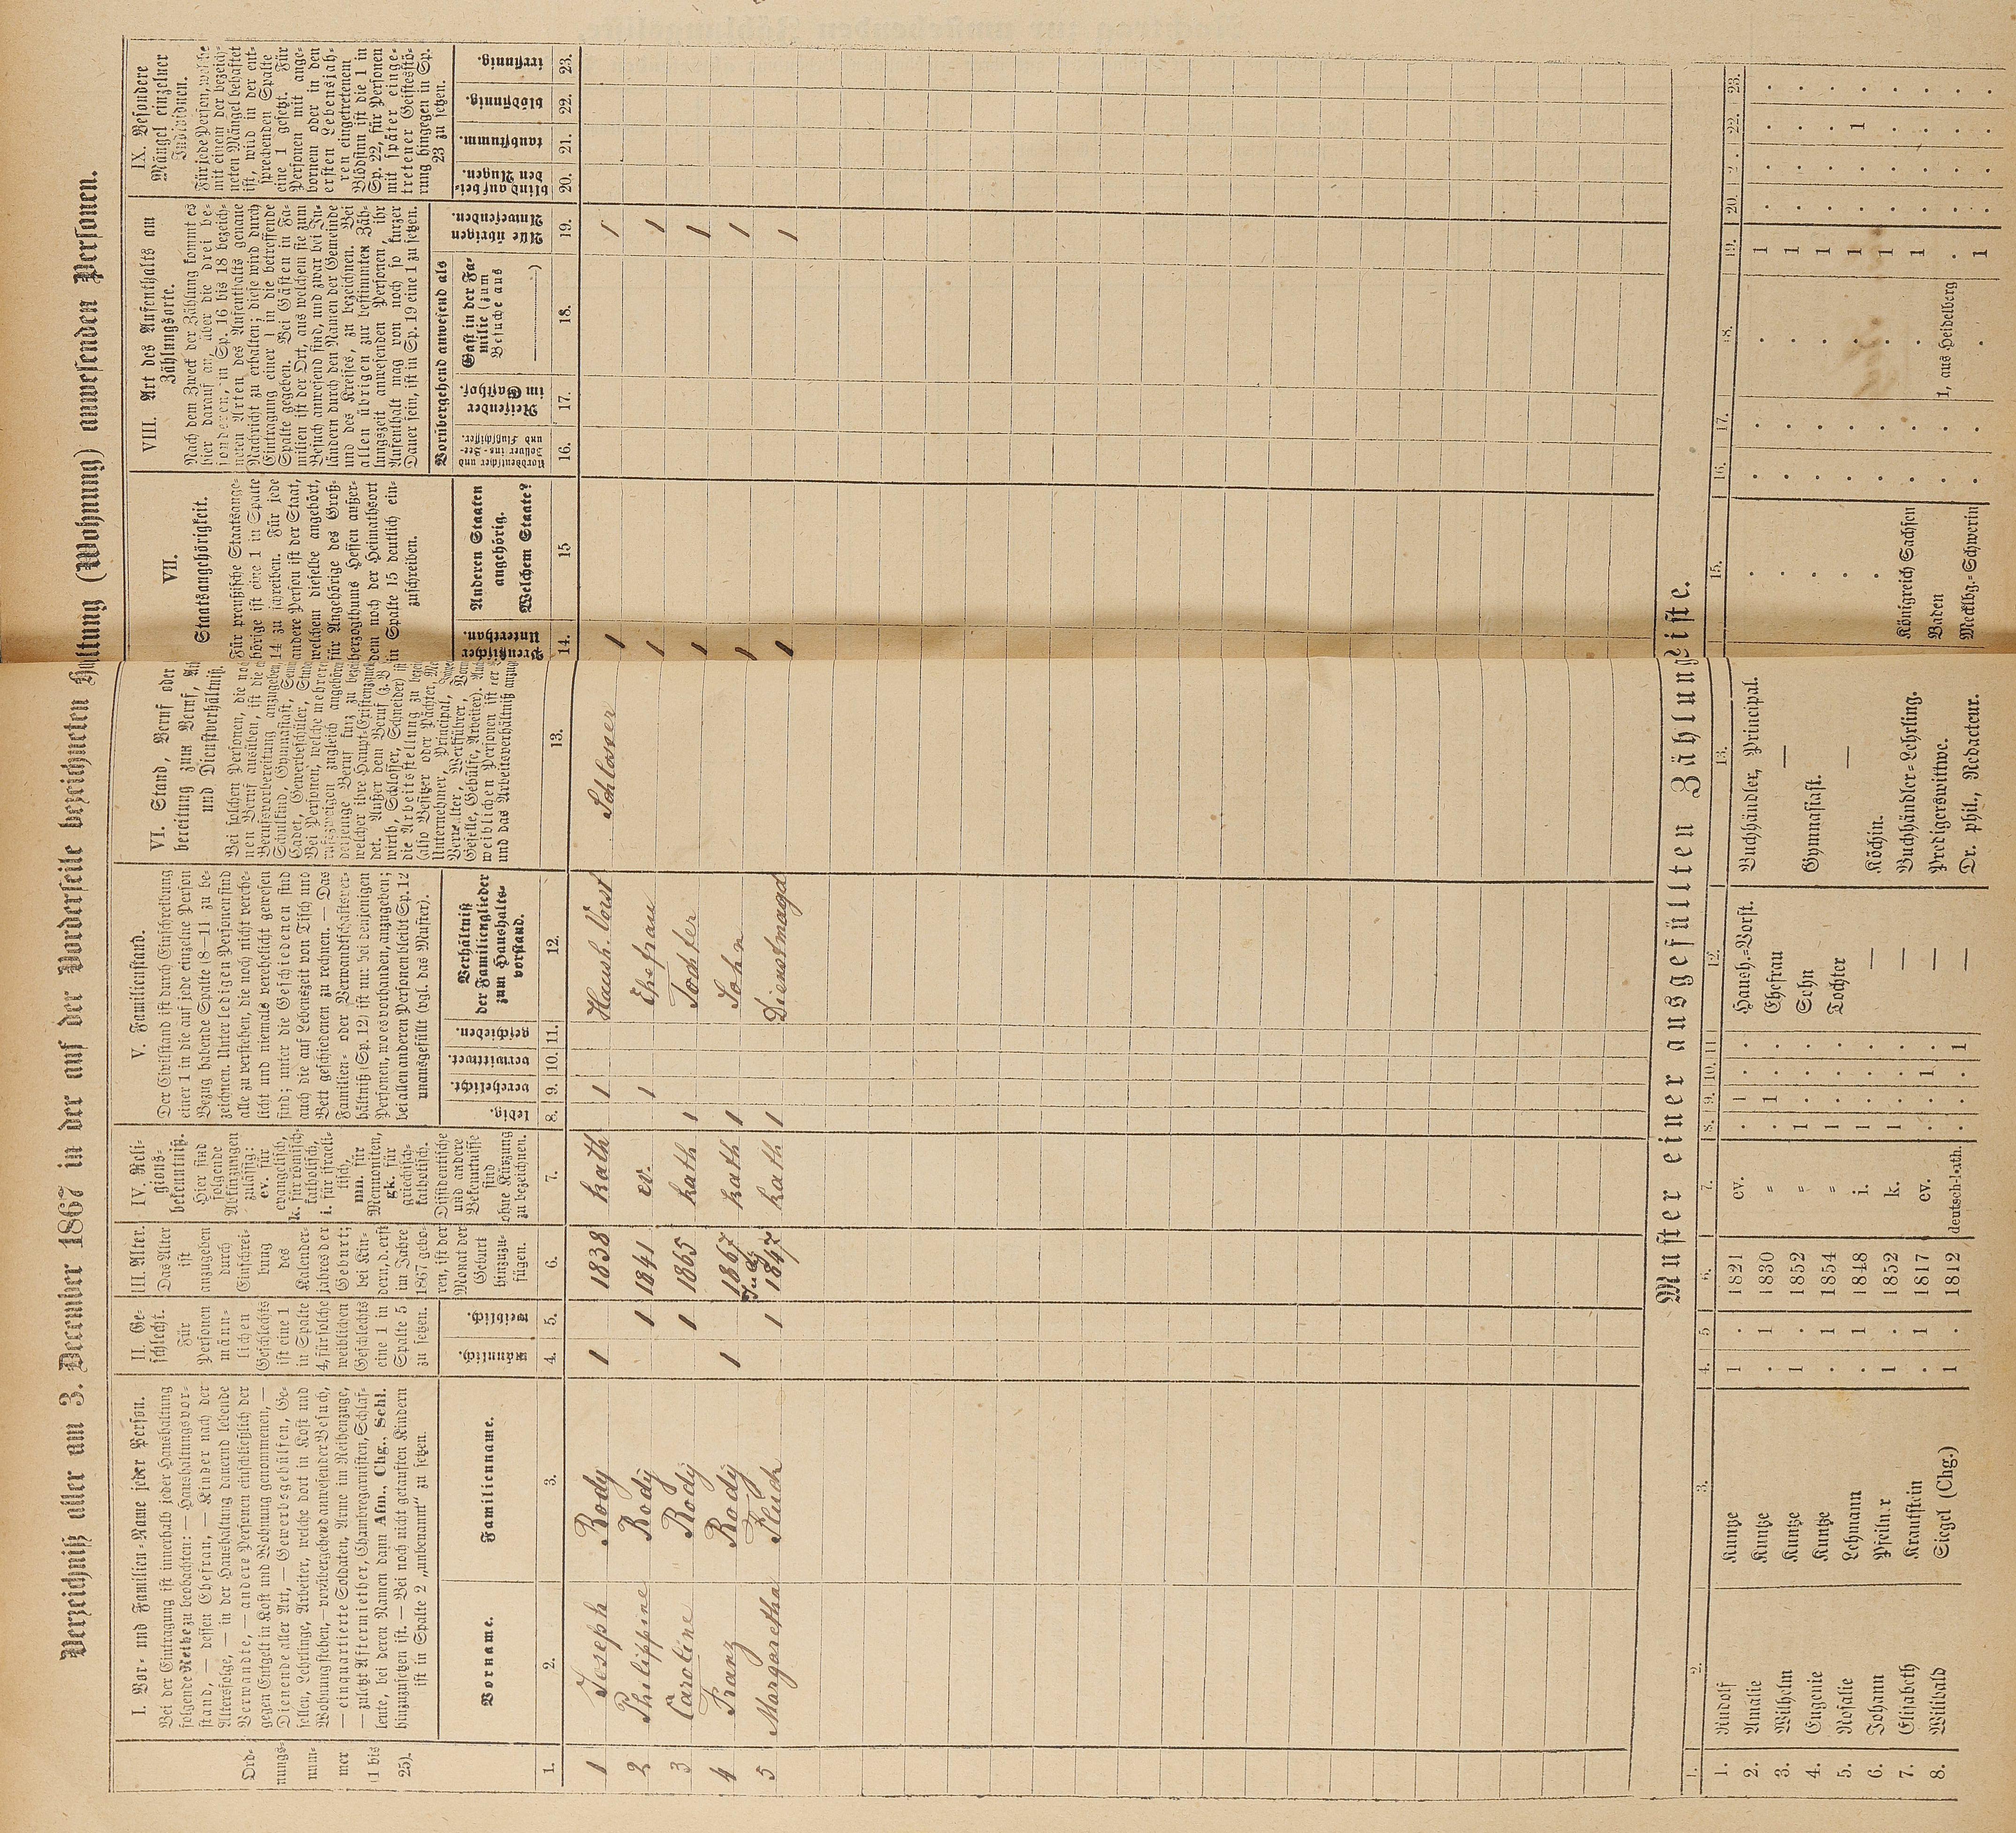 Verzeichniß aller am 3. December 1867 in der auf der Vorderseite bezeichneten Haushaltung (Wohnung) anwesenden Personen.
I. Vor- und Familien-Name jeder Person.
Bei der Eintragung ist innerhalb jeder Haushaltung
folgende Reihe zu beobachten: — Haushaltungsvor-
stand, — dessen Ehefrau, — Kinder nach der
Altersfolge, — in der Haushaltung dauernd lebende
Verwandte, — andere Personen einschließlich der
gegen Entgelt in Kost und Wohnung genommenen, —
Dienende aller Art, — Gewerbsgehülfen, Ge-
sellen, Lehrlinge, Arbeiter, welche dort in Kost und
Wohnung stehen, — vorübergehend anwesender Besuch,
— einquartierte Soldaten, Arme im Reihenzuge,
— zuletzt Aftermiether, Chambregarnisten, Schlaf-
leute, bei deren Namen dann Afm., Chg., Schl.
hinzuzusetzen ist. — Bei noch nicht getauften Kindern
ist in Spalte 2 „unbenannt" zu setzen.
Ord-
nungs-
num-
mer
(1 bis
25).
Vorname.
Familienname.
II. Ge-
schlecht.
Für
Personen
männ-
lichen
Geschlechts
ist eine 1
in Spalte
4, für solche
weiblichen
Geschlechts
eine 1 in
Spalte 5
zu setzen.
männlich.
weiblich.
III. Alter.
Das Alter
ist
anzugeben
durch
Einschrei-
bung
des
Kalender-
jahres der
Geburt;
bei Kin-
dern, d. erst
im Jahre
1867 gebo-
ren, ist der
Monat der
Geburt
hinzuzu-
fügen.
IV. Reli-
gions-
bekenntniß.
Hier sind
folgende
Abkürzungen
zulässig:
ev. für
evangelisch,
k. für römisch-
katholisch,
i. für israeli-
tisch,
mn. für
Mennoniten,
gk. für
griechisch-
katholisch.
Dissidentische
und andere
Bekenntnisse
sind
ohne Kürzung
zu bezeichnen.
V. Familienstand.
Der Civilstand ist durch Einschreibung
einer 1 in die auf jede einzelne Person
Bezug habende Spalte (8—11) zu be-
zeichnen. Unter ledigen Personen sind
alle zu verstehen, die noch nicht verehe-
licht und niemals verehelicht gewesen
sind; unter die Geschiedenen sind
auch die auf Lebenszeit von Tisch und
Bett geschiedenen zu rechnen. — Das
Familien- oder Verwandtschaftsver-
hältniß (Sp. 12) ist nur bei denjenigen
Personen, wo es vorhanden, anzugeben;
bei allen anderen Personen bleibt Sp. 12
unausgefüllt (vgl. das Muster).
ledig.
verehelicht.
verwittwet.
geschieden.
Verhältniß
der Familienglieder
zum Haushalts-
vorstand.
VI. Stand, Beruf oder
bereitung zum Beruf,
und Dienstverhältniß.
Bei solchen Personen, die
nen Beruf ausüben, ist die
Berufsvorbereitung anzugeben,
Schulkind, Gymnasiast,
Cadet, Gewerbeschüler,
Bei Personen, welche mehrere
zugleich angehören
derjenige Beruf kurz zu
welcher ihre Haupt-Existenz
det. Außer dem Beruf (z. B.
wirth, Schlosser, Schneider)
die Arbeitsstellung zu
(also Besitzer oder Pächter,
Unternehmer, Principal,
Verwalter, Werkführer,
Geselle, Gehülfe, Arbeiter).
weiblichen Personen ist
und das Arbeitsverhältniß
VII.
Staatsangehörigkeit.
Für preußische Staatsange-
hörige ist eine 1 in Spalte
14 zu schreiben. Für jede
andere Person ist der Staat,
welchem dieselbe angehört,
für Angehörige des Groß-
herzogthums Hessen außer-
dem noch der Heimathsort
in Spalte 15 deutlich ein-
zuschreiben.
Preußischer
Unterthan.
Anderen Staaten
angehörig.
Welchem Staate?
VIII. Art des Aufenthalts am
Zählungsorte.
Nach dem Zweck der Zählung kommt es
hier darauf an, über die drei be-
sonderen, in Sp. 16 bis 18 bezeich-
neten Arten des Aufenthalts genaue
Nachricht zu erhalten; diese wird durch
Eintragung einer 1 in die betreffende
Spalte gegeben. Bei Gästen in Fa-
milien ist der Ort, aus welchem sie zum
Besuch anwesend sind, und zwar bei In-
ländern durch den Namen der Gemeinde
und des Kreises, zu bezeichnen. Bei
allen übrigen zur bestimmten Zäh-
lungszeit anwesenden Personen, ihr
Aufenthalt mag von noch so kurzer
Dauer sein, ist in Sp. 19 eine 1 zu setzen.
Vorübergehend anwesend als
Norddeutscher und
Zollver
und Flußschiffer.
Reisender
im Gasthof.
Gast in der Fa-
milie (zum
Besuche aus
)
Alle übrigen
Anwesenden.
IX. Besondere
Mängel einzelner
Individuen.
Für jede Person, welche
mit einem der bezeich-
neten Mängel behaftet
ist, wird in der ent-
sprechenden Spalte
eine 1 gesetzt. Für
Personen mit ange-
bornem oder in den
ersten Lebensjah-
ren eingetretenem
Blödsinn ist die 1 in
Sp. 22, für Personen
mit später einge-
tretener Geistesstö-
rung hingegen in Sp.
23 zu setzen.
blind auf bei-
den Augen.
taubstumm.
blödsinnig.
irrsinnig.
1. 2. 3. 4. 5. 6. 7. 8. 9. 10. 11. 12. 13. 14. 15 16. 17. 18. 19. 20. 21. 22. 23.
1 Joseph Body 1 1838 kath 1 Haush. Vorst Schlosser 1 1
2 Philippine Body 1 1841 ev. 1 Ehefrau 1 1
3 Caroline Body 1 1865 kath 1 Tochter 1 1
4 Franz Body 1 1867 July kath 1 Sohn 1 1
5 Margaretha 1 1847 kath 1 Dienstmagd 1 1
Muster einer ausgefüllten Zählungsliste.
1. 2. 3. 4. 5 6. 7. 8. 9. 10. 11 12. 13. 15. 16. 17. 18. 19. 20. 2 . 22. 23.
1. Rudolf Kuntze 1 . 1821 ev. . 1 . . Haush.-Vorst. Buchhändler, Principal. . . . . 1 . . . .
2. Amalie Kuntze . 1 1830 „ . 1 . . Ehefrau — . . . . 1 . . . .
3. Wilhelm Kuntze 1 . 1852 „ 1 . . . Sohn Gymnasiast. . . . . 1 . . . .
4. Eugenie Kuntze . 1 1854 „ 1 . . . Tochter — . . . . 1 . . 1 .
5. Rosalie Lehmann . 1 1848 i. 1 . . . — Köchin. . . . 1 . . . .
6. Johann Pfeilner 1 . 1852 k. 1 . . . — Buchhändler-Lehrling. Königreich Sachsen . . . 1 . . . .
7. Elisabeth Krautstein . 1 1817 ev. . . 1 . — Predigerswittwe. Baden . . 1, aus Heidelberg . . . . .
8. Wilibald Siegel (Chg.) 1 . 1812 deutsch-kath. . . . 1 — Dr. phil., Redacteur. Mecklbg.-Schwerin . . . 1 . . . .